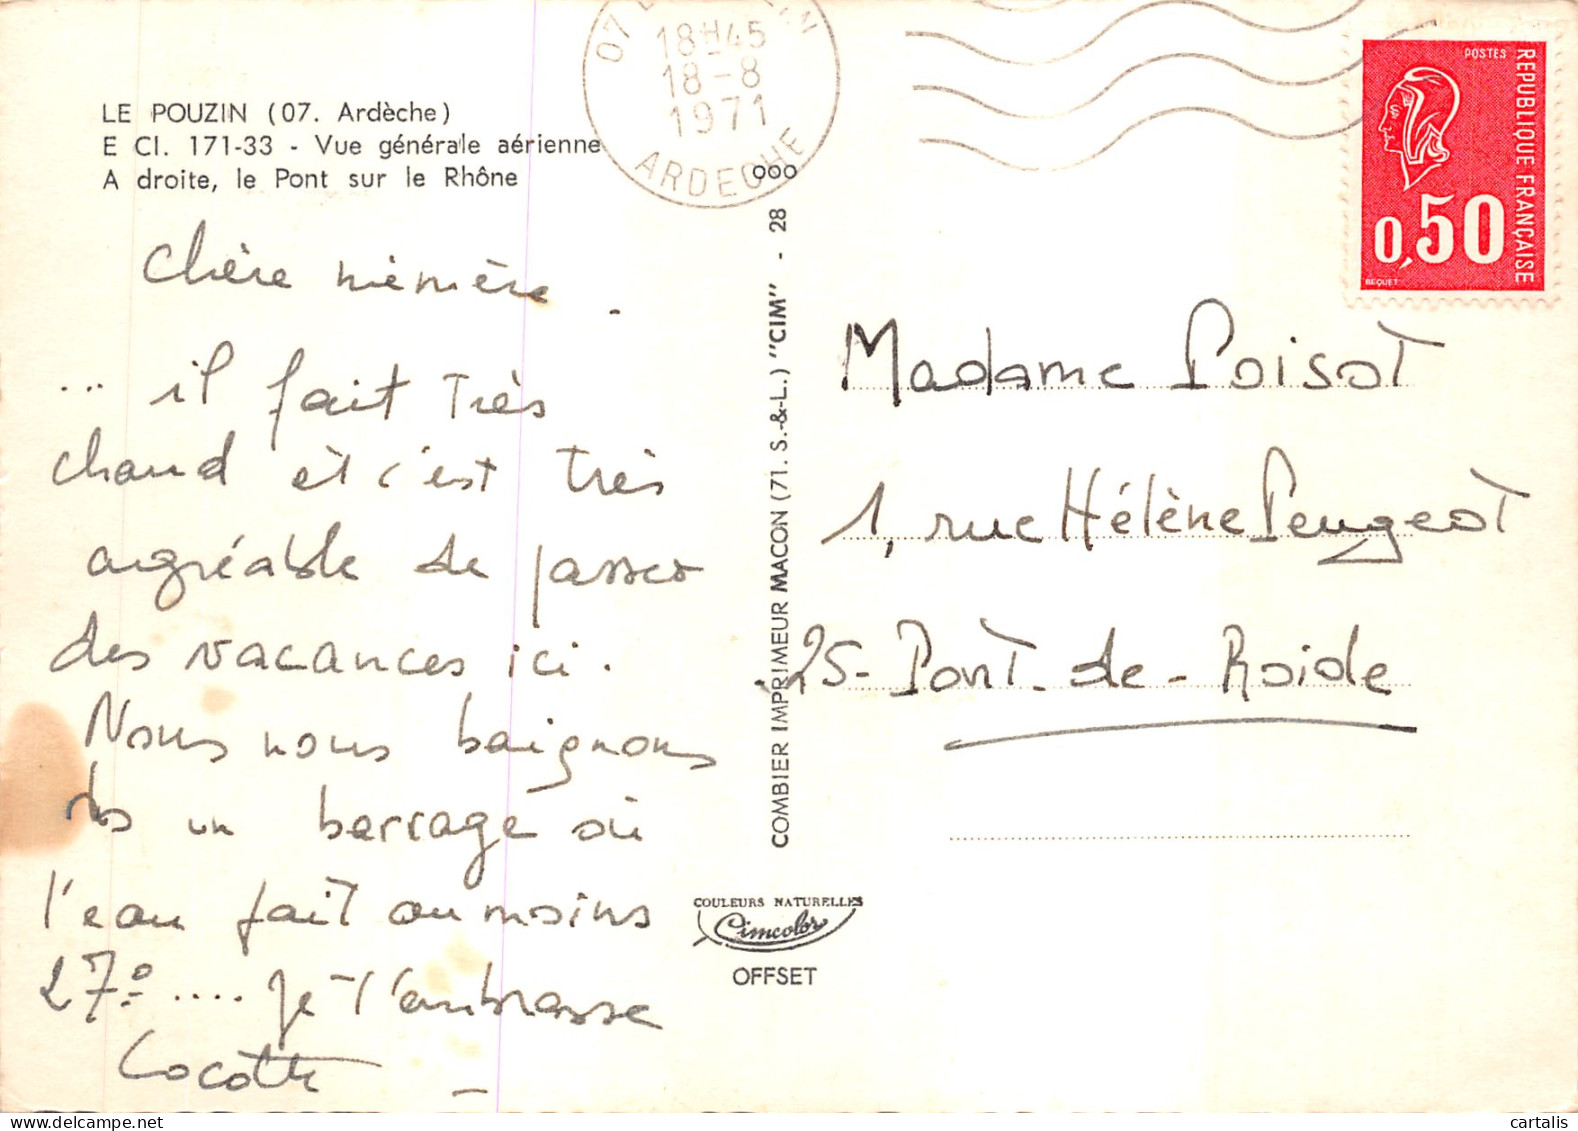 LE POUZIN (07. Ardèche)
E Cl. 171-33 - Vue générale aérienne
A droite, le Pont sur le Rhône
Chère mémère.
... il fait très
chaud et c'est très
agréable de passer
des vacances ici.
Nous nous baignons
ds un barrage où
l'eau fait au moins
27º .... je t'embrasse
Cocotte
18H45
18-8
1971
ARDECHE
COMBIER IMPRIMEUR MACON (71. S.-&-L.) "CIM" - 28 900
COULEURS NATURELLES
Cimcolor
OFFSET
POSTES
REPUBLIQUE FRANÇAISE
0,50
BEQUET
Madame Poisot
1, rue Hélène Peugeot
25-Pont-de-Roide
cartalis